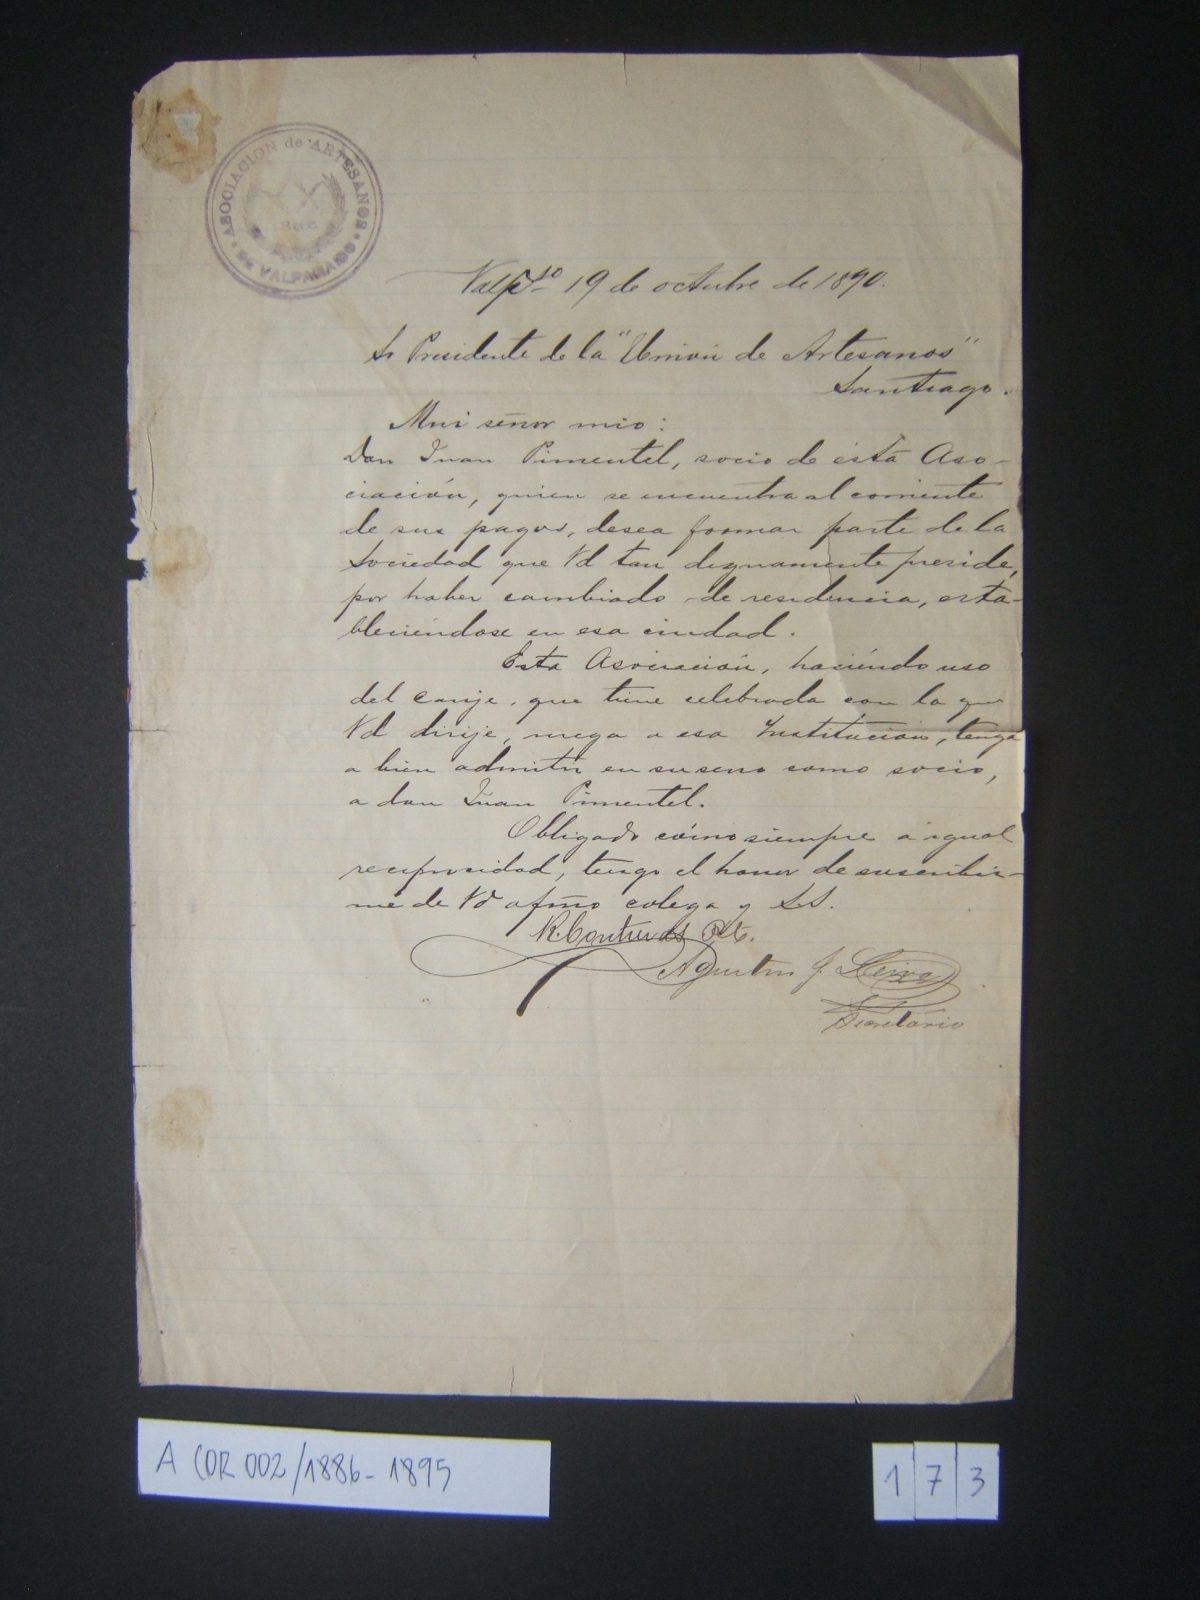 ASOCIACION de ARTESANOS
DE VALPARAISO
Valpso 19 de octubre de 1890.
Sr Presidente de la "Union de Artesanos"
Santiago.
Mui señor mio:
Don Juan Pimentel, socio de ésta Aso-
ciación, quien se encuentra al corriente
de sus pagos, desea formar parte de la
Sociedad que Vd tan dignamente preside,
por haber cambiado de residencia, esta-
bleciéndose en esa ciudad.
Esta Asociación, haciéndo uso
del canje, que tiene celebrada con la que
Vd dirije, ruega a esa Institución, tenga
a bien admitir en su seno como socio,
a don Juan Pimentel.
Obligado cómo siempre a igual
reciprosidad, tengo el honor de suscribir-
me de Vd afmo colega y S.S.
R. Contreras
Agustin J. Leiva
Secretario
A COR 002/1886-1895
1 7 3